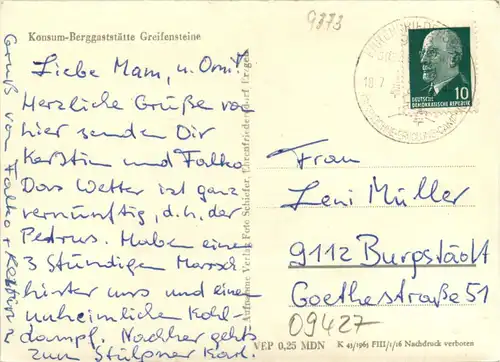 9373
Konsum-Berggaststätte Greifensteine
Liebe Mam, u. Omi!
Herzliche Grüße von
hier senden Dir
Kerstin und Falko
Das Wetter ist ganz
vernünftig, d.h. der
Petrus. Haben einen
3 Stündigen Marsch
hinter uns und einen
unheimlichen Kohl-
dampf. Nachher gehts
zum Stülpner Karl.
Gruß von Falko + Kerstin
Foto Schiefer, Ehrenfriedersdorf Erzgeb.
18.7.
10
DEUTSCHE
DEMOKRATISCHE REPUBLIK
Frau
Leni Müller
9112 Burgstädt
Goethestraße 51
09427
VEP 0,25 MDN K 43/1961 FIII/1/16 Nachdruck verboten